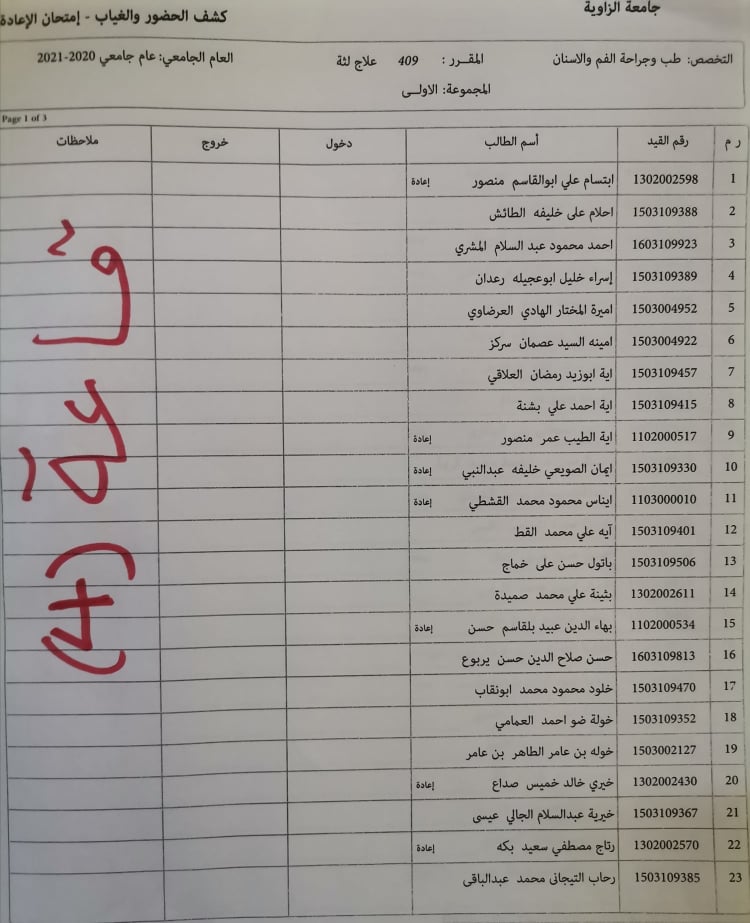 جامعة الزاوية
كشف الحضور والغياب - إمتحان الإعادة
التخصص: طب وجراحة الفم والاسنان المقـــرر : 409 علاج لثة العام الجامعي: عام جامعي 2020-2021
المجموعة: الاولــى
Page 1 of 3
ر م رقم القيد أسم الطالب دخول خروج ملاحظات
1 1302002598 ابتسام علي ابوالقاسم منصور إعادة
2 1503109388 احلام على خليفه الطائش
3 1603109923 احمد محمود عبد السلام المشري
4 1503109389 إسراء خليل ابوعجيله رعدان
5 1503004952 اميرة المختار الهادي العرضاوي
6 1503004922 امينه السيد عصمان سركز
7 1503109457 اية ابوزيد رمضان العلاقي
8 1503109415 اية احمد علي بشنة
9 1102000517 اية الطيب عمر منصور إعادة
10 1503109330 ايمان الصويعي خليفه عبدالنبي إعادة
11 1103000010 ايناس محمود محمد القشطي إعادة
12 1503109401 آيه علي محمد القط
13 1503109506 باتول حسن على خماج
14 1302002611 بثينة علي محمد صميدة
15 1102000534 بهاء الدين عبيد بلقاسم حسن إعادة
16 1603109813 حسن صلاح الدين حسن يربوع
17 1503109470 خلود محمود محمد ابونقاب
18 1503109352 خولة ضو احمد العمامي
19 1503002127 خوله بن عامر الطاهر بن عامر
20 1302002430 خيري خالد خميس صداع إعادة
21 1503109367 خيرية عبدالسلام الجالي عيسى
22 1302002570 رتاج مصطفي سعيد بكه إعادة
23 1503109385 رحاب التيجانى محمد عبدالباقى
(4)